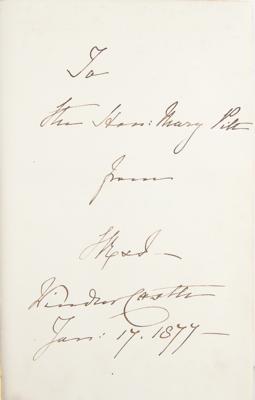 To
the Hon: Mary Pitt
from
VR&I—
Windsor Castle
Jan: 17. 1877—